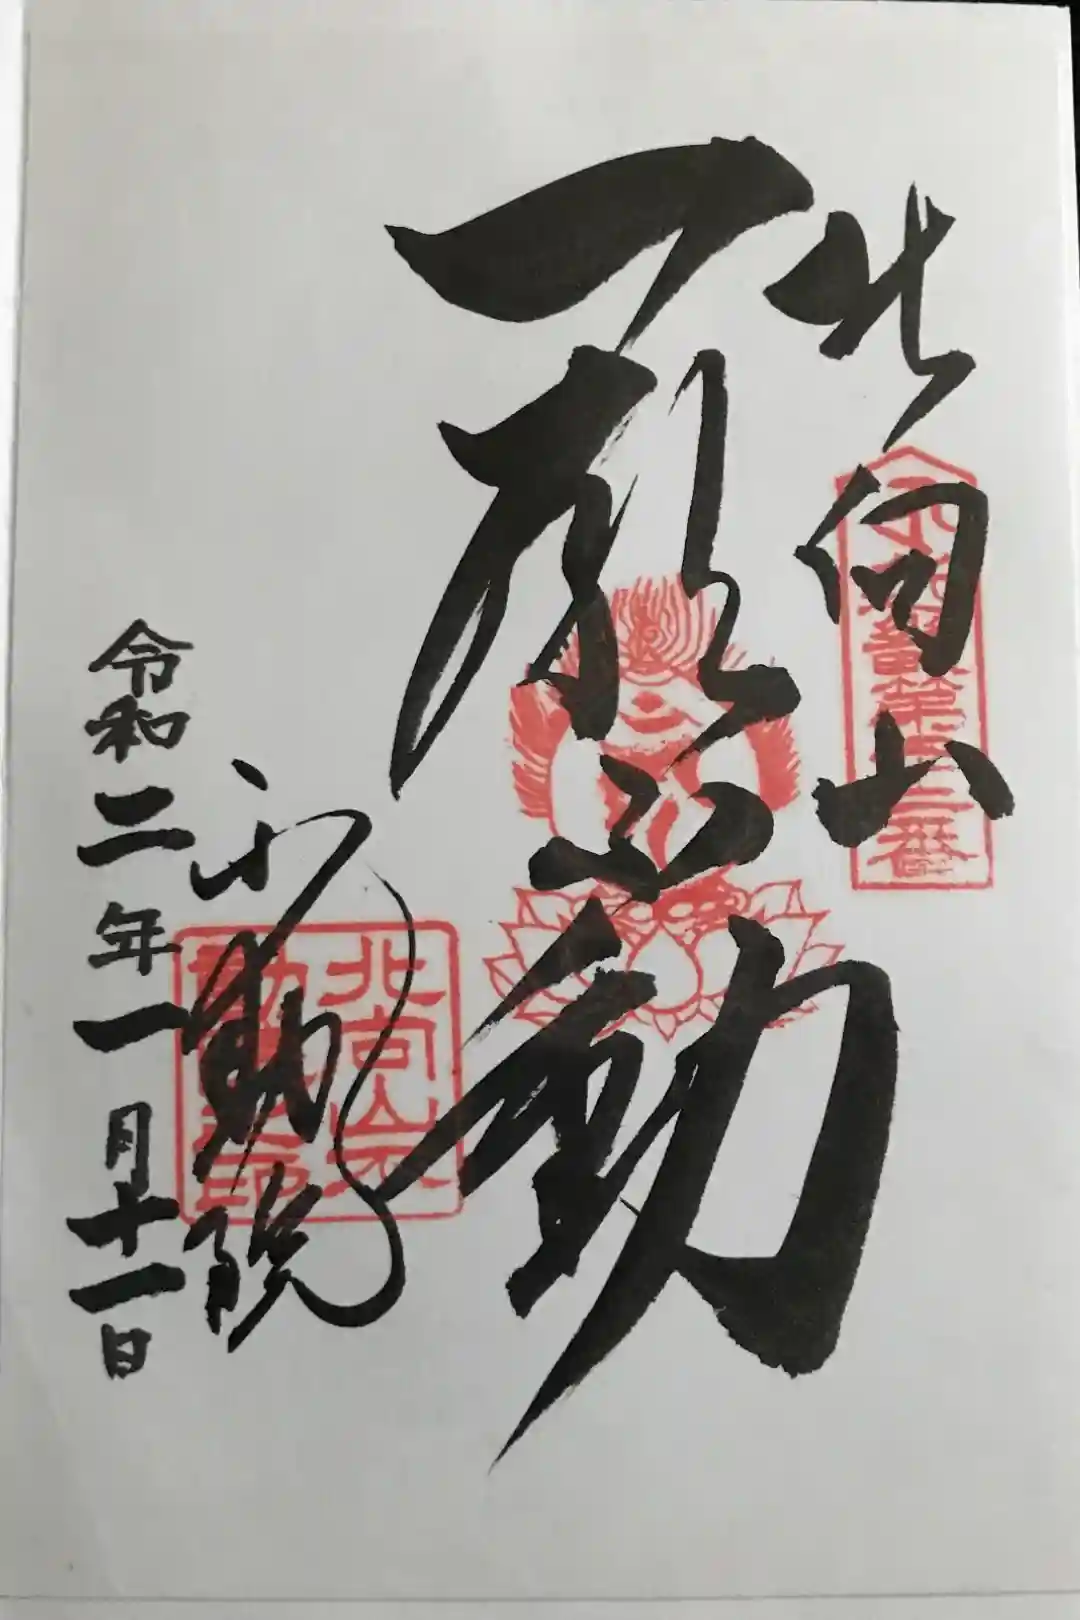 北向山
一願不動
不動院
令和二年一月十一日
北向山不
動院之印